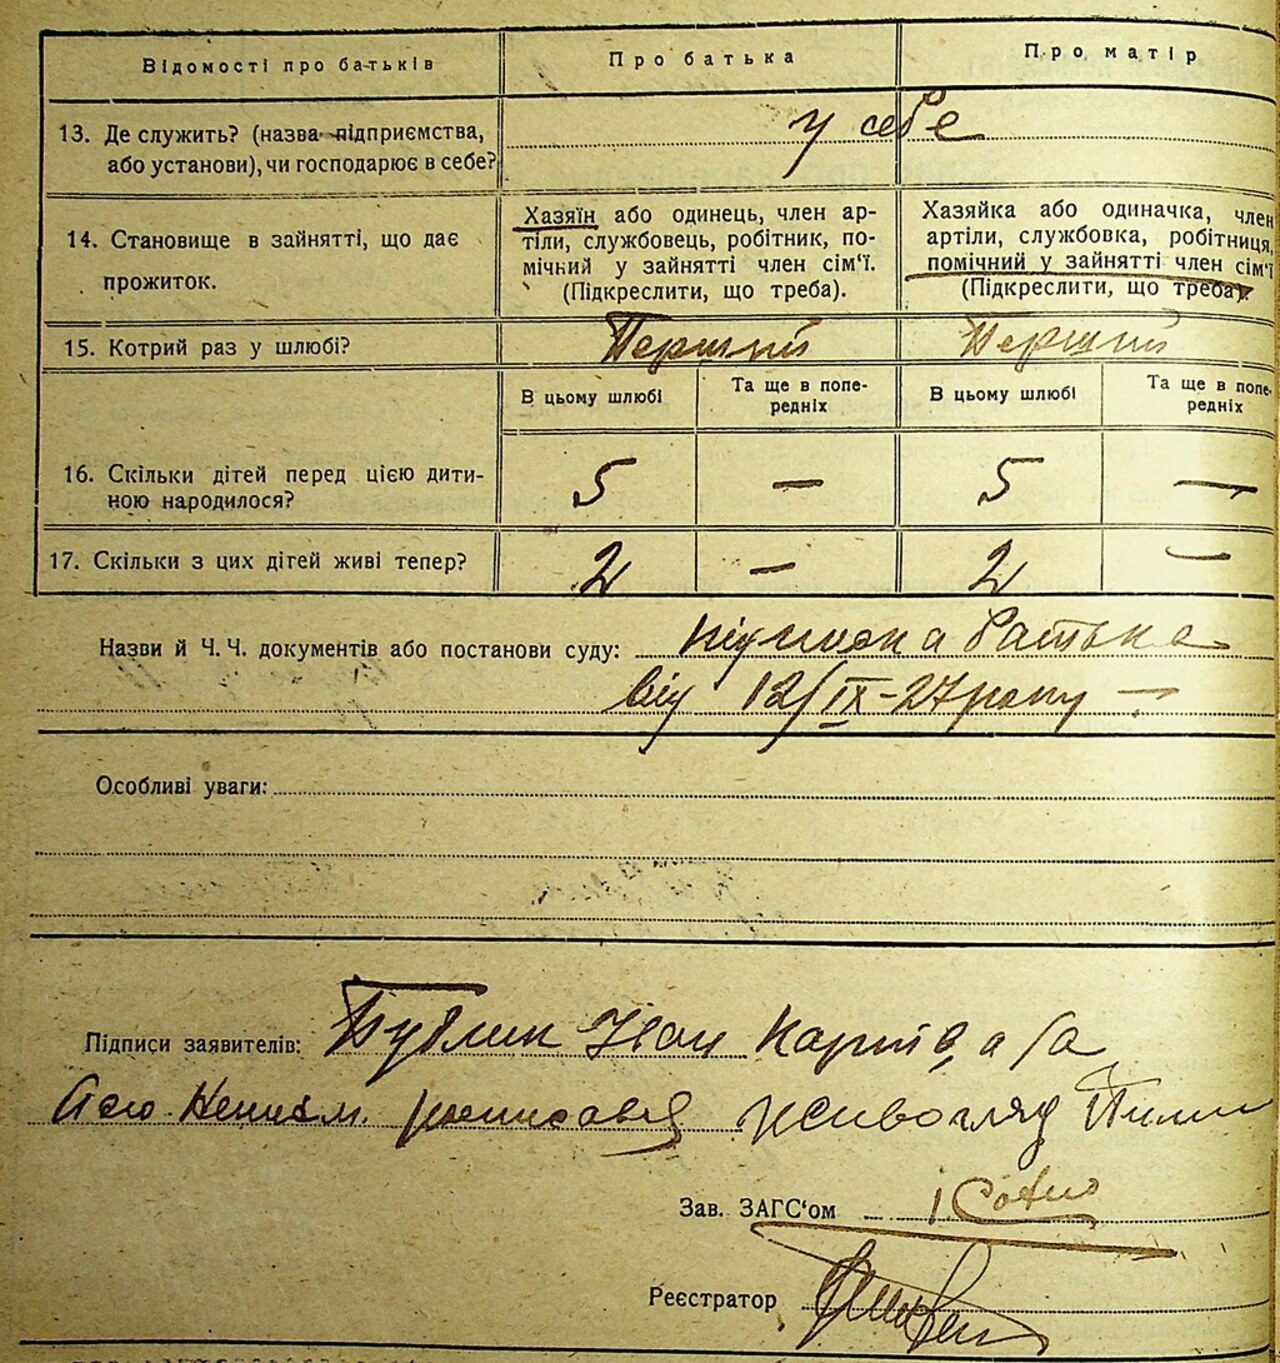 Відомості про батьків Про батька Про матір
13. Де служить? (назва підприємства, або установи), чи господарює в себе? у себе
14. Становище в зайнятті, що дає прожиток.
Хазяїн або одинець, член ар-
тіли, службовець, робітник, по-
мічний у зайнятті член сім'ї.
(Підкреслити, що треба).
Хазяйка або одиначка, член
артіли, службовка, робітниця,
помічний у зайнятті член сім'ї
(Підкреслити, що треба).
15. Котрий раз у шлюбі? Перший Перший
В цьому шлюбі Та ще в попе-редніх В цьому шлюбі Та ще в попе-редніх
16. Скільки дітей перед цією дити-
ною народилося? 5 — 5 —
17. Скільки з цих дітей живі тепер? 2 — 2 —
Назви й Ч. Ч. документів або постанови суду: батька
від 12/IX-27 року —
Особливі уваги:
Підписи заявителів: Бублик Іван Карпів, а за
його розписавсь
Зав. ЗАГС'ом
Реєстратор